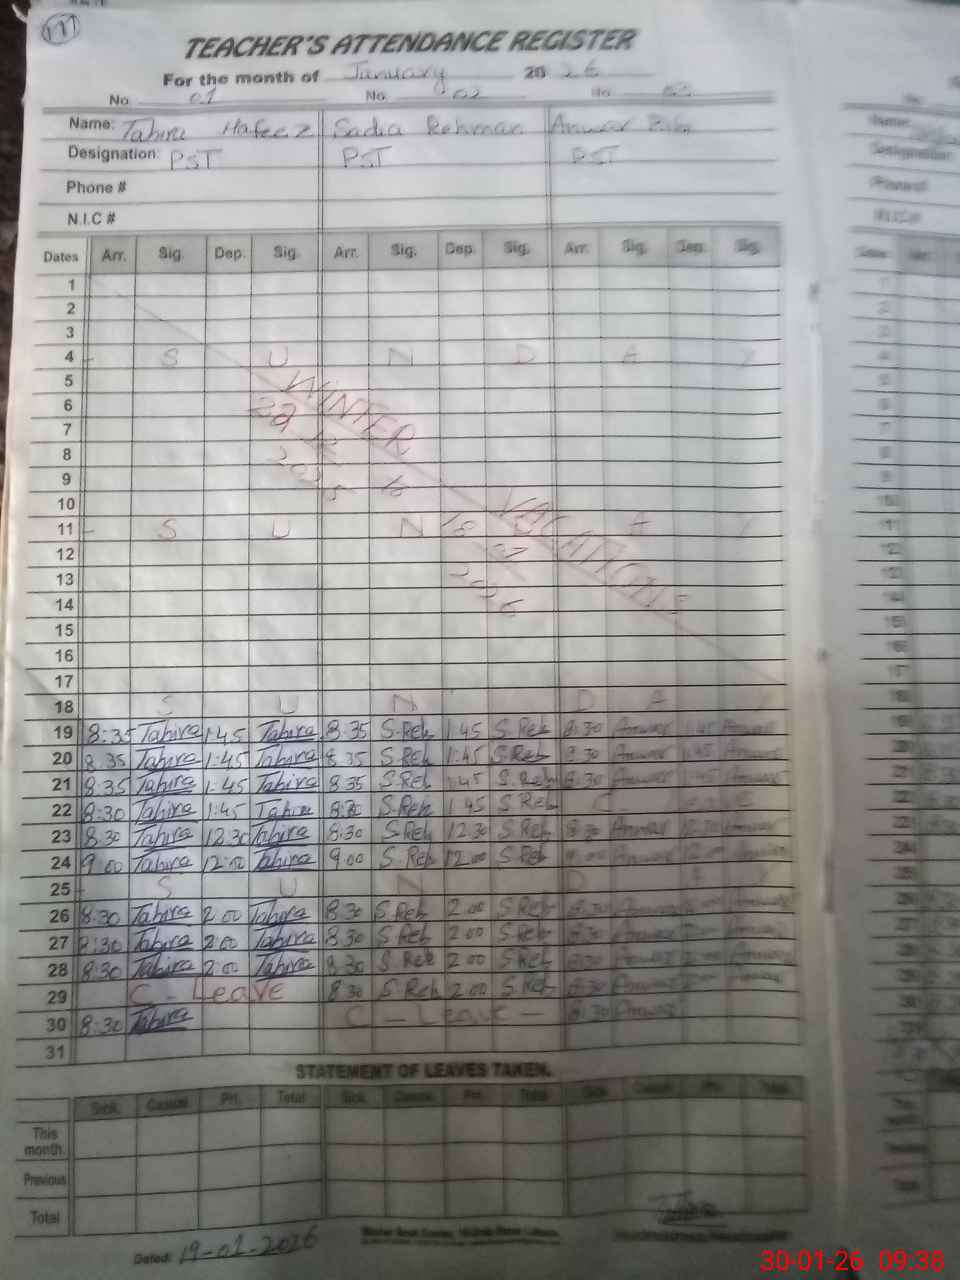 TEACHER'S ATTENDANCE REGISTER
For the month of January 2026
No 01 No. 02 No 03
Name: Tahira Hafeez Sadia Rehman Anwar
Designation: PST PST PST
Phone #
N.I.C #
Dates Arr. Sig. Dep. Sig. Arr. Sig. Dep. Sig. Arr. Sig. Dep. Sig.
1
2
3
4 S U N D A Y
5 WINTER
6 22
7 12
8 2025
9 to
10 VACATIONS
11 S U N 18 A Y
12 01
13 2026
14
15
16
17
18 S U N D A Y
19 8:35 Tahira 1:45 Tahira 8:35 S.Reh 1:45 S.Reh 8:30 Anwar 1:45 Anwar
20 8:35 Tahira 1:45 Tahira 8:35 S.Reh 1:45 S.Reh 8:30 Anwar 1:45 Anwar
21 8:35 Tahira 1:45 Tahira 8:35 S.Reh 1:45 S.Reh 8:30 Anwar 1:45 Anwar
22 8:30 Tahira 1:45 Tahira 8:30 S.Reh 1:45 S.Reh C - Leave
23 8:30 Tahira 12:30 Tahira 8:30 S.Reh 12:30 S.Reh 8:30 Anwar 12:30 Anwar
24 9:00 Tahira 12:00 Tahira 9:00 S.Reh 12:00 S.Reh Anwar 12:00 Anwar
25 S U N D A Y
26 8:30 Tahira 2:00 Tahira 8:30 S.Reh 2:00 S.Reh 8:30 Anwar
27 8:30 Tahira 2:00 Tahira 8:30 S.Reh 2:00 S.Reh 8:30 Anwar
28 8:30 Tahira 2:00 Tahira 8:30 S.Reh 2:00 S.Reh 8:30 Anwar
29 C - Leave 8:30 S.Reh 2:00 S.Reh 8:30 Anwar Anwar
30 8:30 Tahira C - Leave - 8:30 Anwar
31
STATEMENT OF LEAVES TAKEN.
Sick. Casual. Pri. Total Sick. Casual. Pri. Total Sick. Casual. Pri. Total
This month.
Previous
Total
Dated: 19-01-2026
30-01-26 09:38